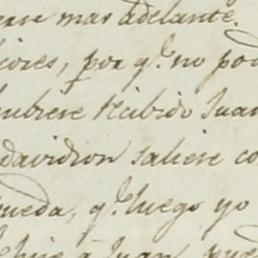 ere mas adelante.
iores, por q.e no pod
hubiere recibido Juan
davidson saliese co
ueda, q.e luego yo